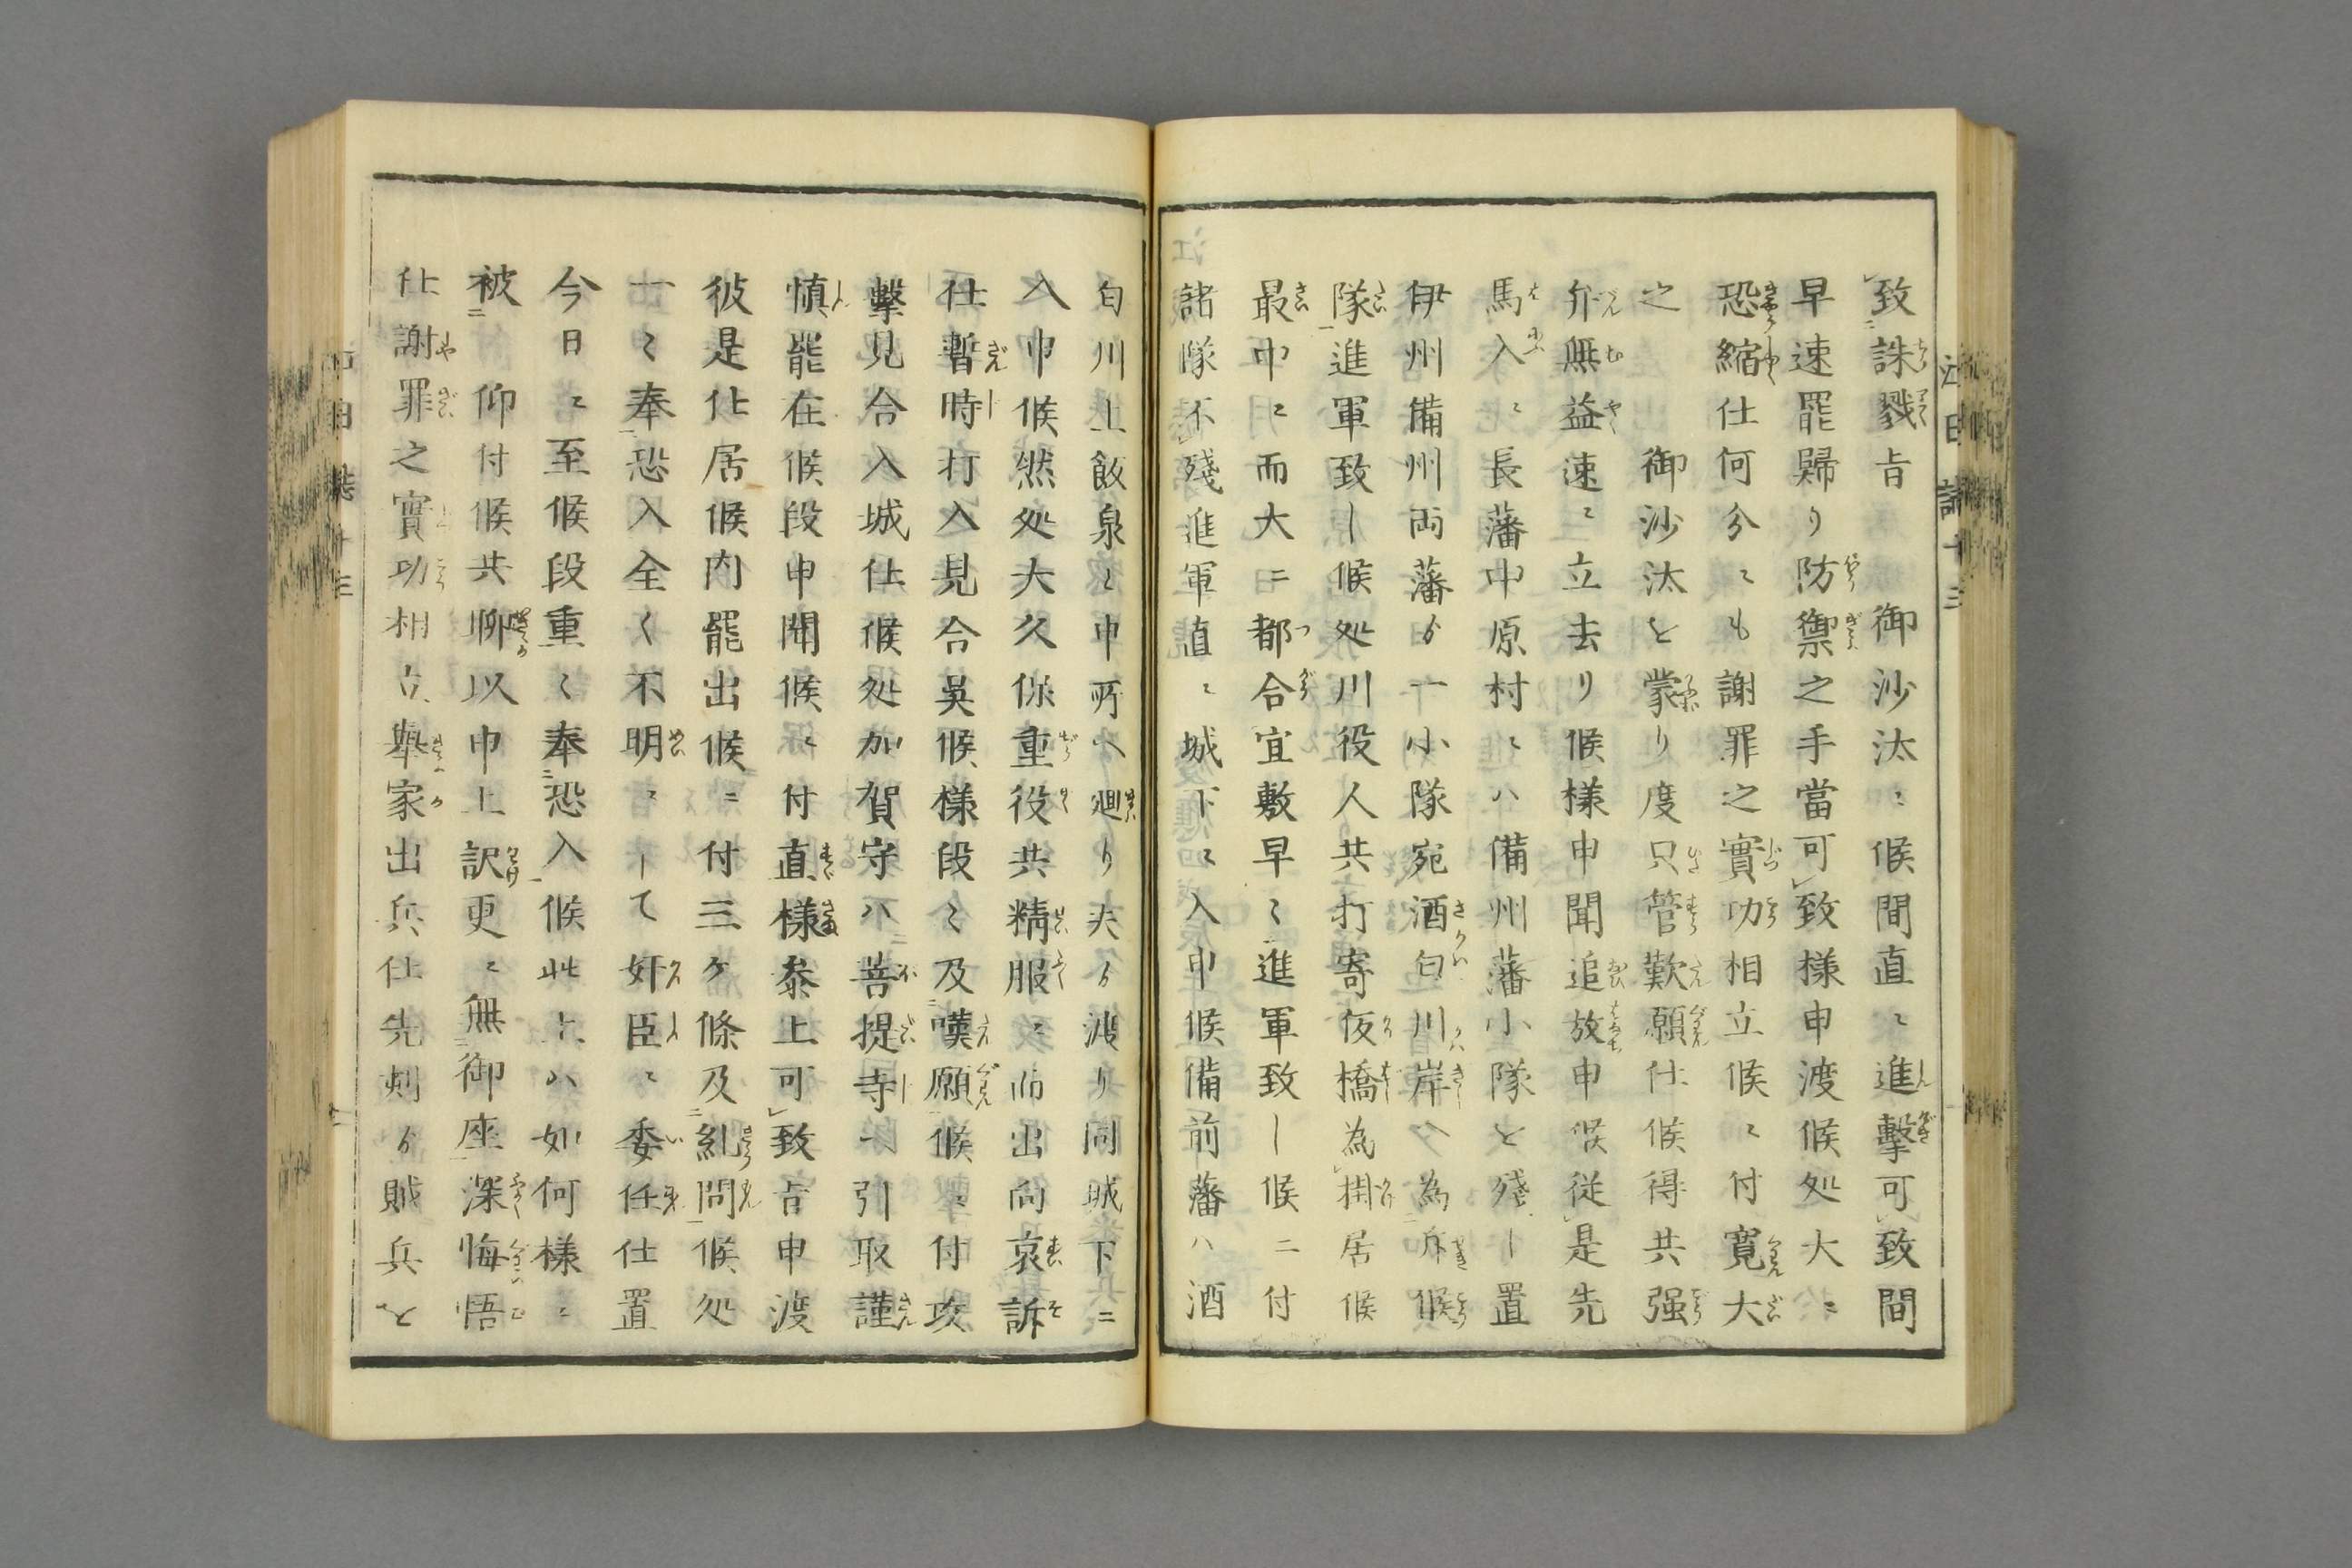 致誅戮旨　御沙汰ニ候間直ニ進撃可致間
早速罷歸り防禦之手當可致樣申渡候処大ニ
恐縮仕何分ニも謝罪之實功相立候ニ付寛大
之　御沙汰を蒙り度只管歎願仕候得共强
弁無益速ニ立去り候樣申聞追放申候從是先
馬入ニ長藩中原村ニハ備州藩小隊を殘し置
伊州備州両藩ゟ一小隊宛酒匂川岸へ為斥候
隊進軍致し候処川役人共打寄仮橋為掛居候
最中ニ而大ニ都合宜敷早々進軍致し候ニ付
諸隊不殘進軍直ニ城下ニ入申候備前藩ハ酒
匂川上飯泉と申所へ廻り夫ゟ渡り同城下ニ
入申候然処大久保重役共精服ニ而出向哀訴
仕暫時打入見合吳候樣段々及嘆願候ニ付攻
擊見合入城仕候処加賀守ハ菩提寺ヘ引取謹
愼罷在候段申聞候ニ付直樣参上可致旨申渡
彼是仕居候内罷出候ニ付三ケ條及糺問候処
一々奉恐入全く不明ニして奸臣ニ委任仕置
今日ニ至候段重々奉恐入候此上ハ如何樣ニ
被　仰付候共聊以申上訳更ニ無御座深悔悟
仕謝罪之實功相立擧家出兵仕先刻ゟ賊兵と
江日誌十三